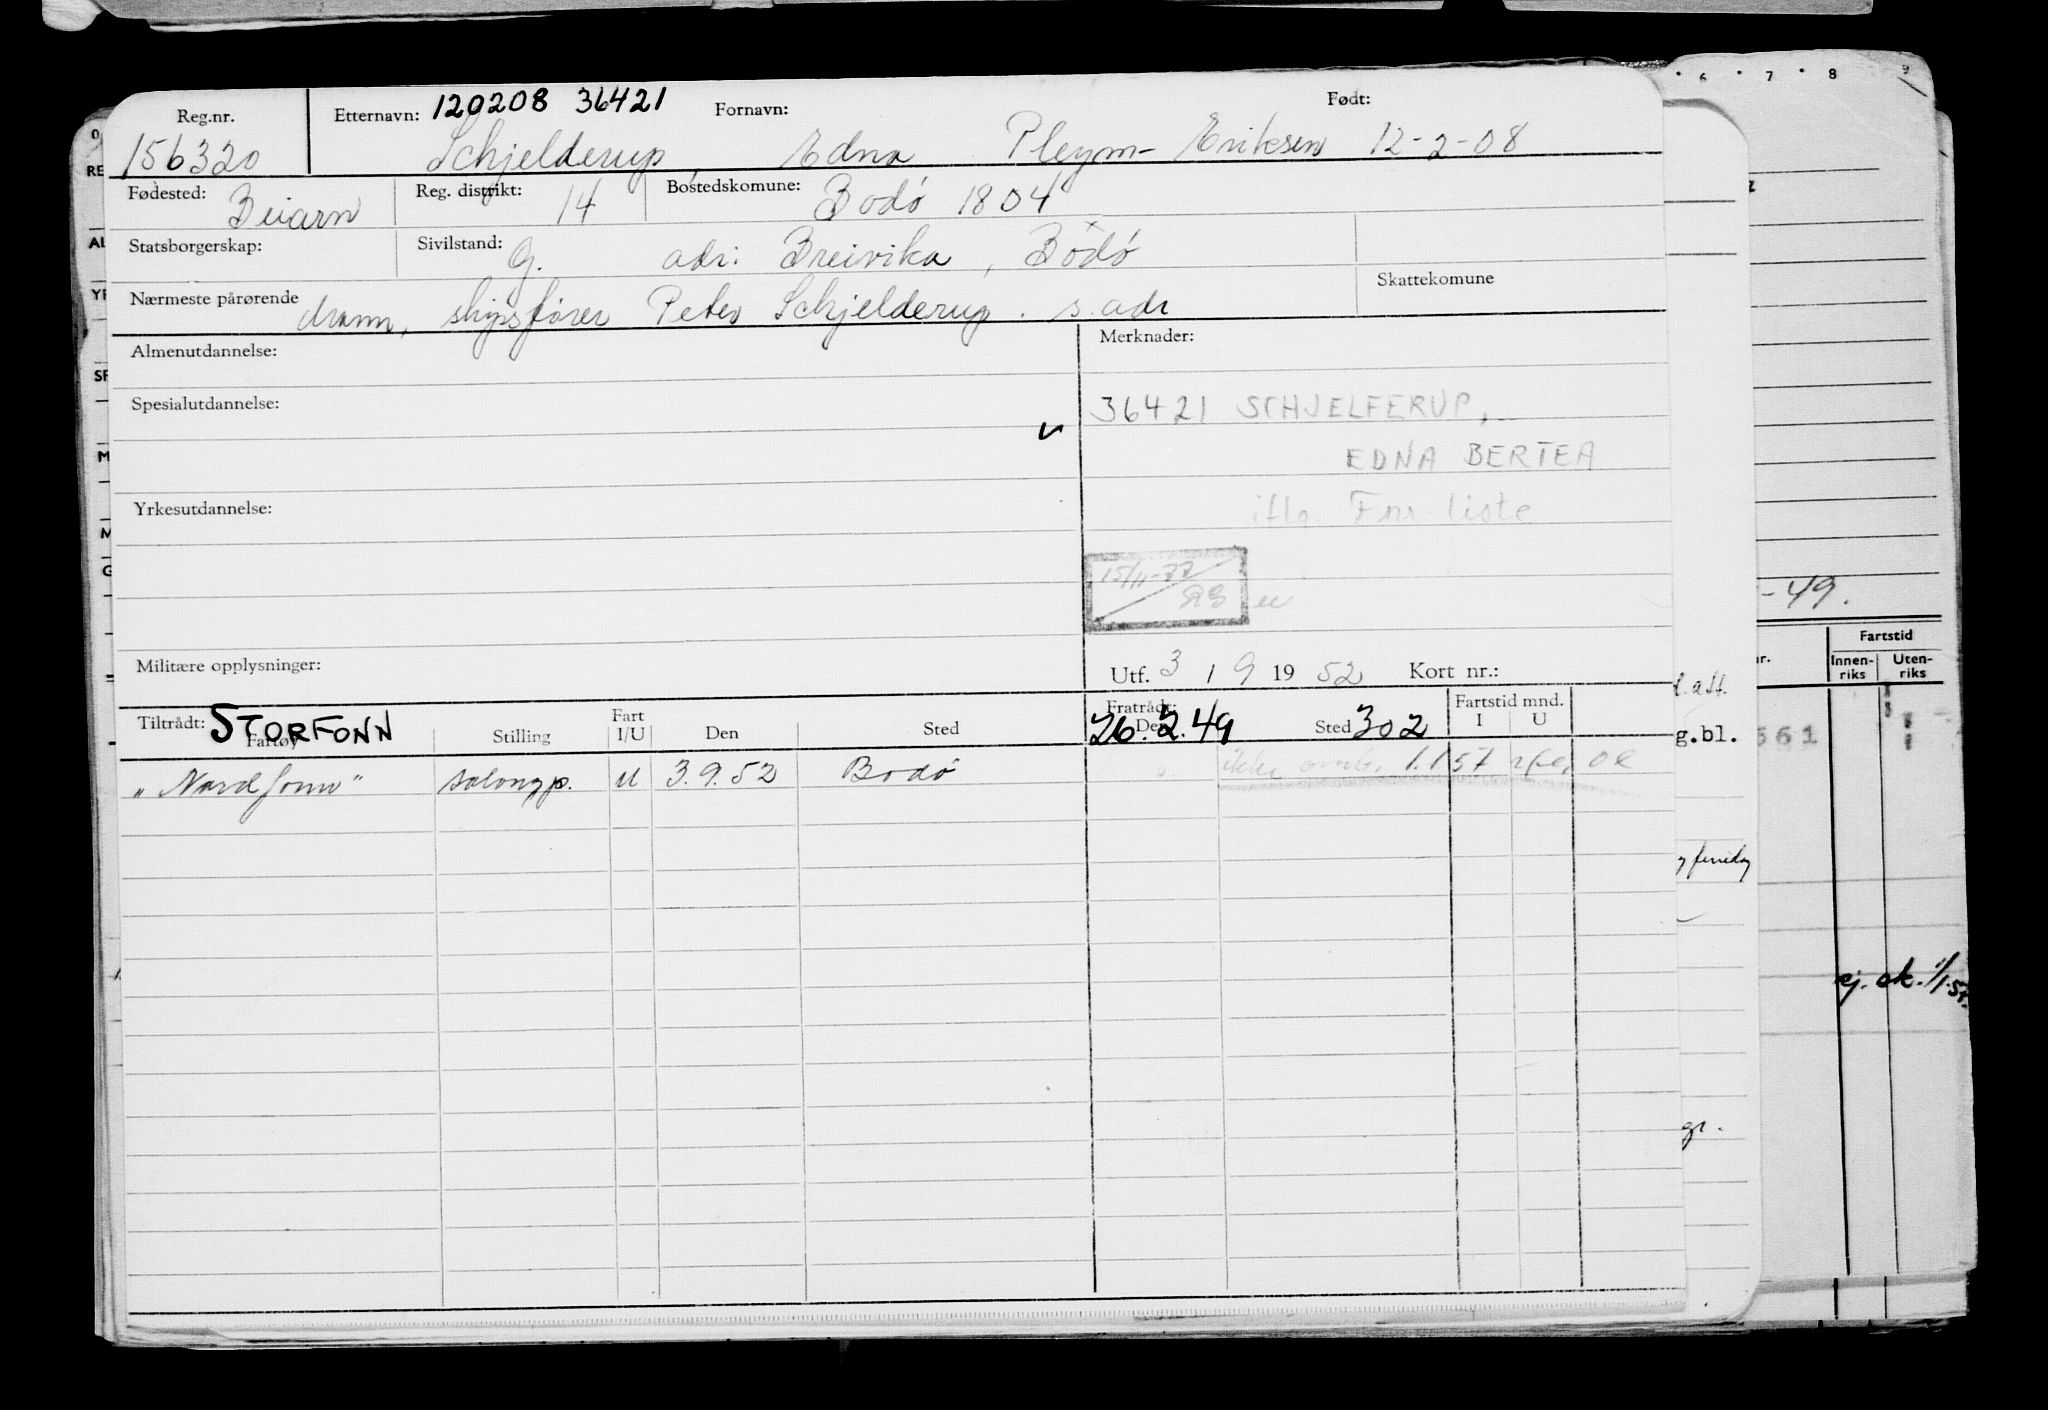 Reg.nr. Etternavn: 120208 36421 Fornavn: Født:
156320 Schjelderup Edna Pleym-Eriksen 12-2-08
Fødested: Beiarn Reg. distrikt: 14 Bostedskomune: Bodø 1804
Statsborgerskap: Sivilstand: G. adr. Breivika, Bodø
Skattekomune
Nærmeste pårørende skipsfører Peter Schjelderup. s. adr
Almenutdannelse: Merknader:
Spesialutdannelse: 36421 SCHJELFERUP,
EDNA BERTEA
Yrkesutdannelse: iflg. Fnr-liste
15/11-77
Militære opplysninger: Utf. 3 / 9 19 52 Kort nr.:
Tiltrådt: STORFONN Fratrådt: Fartstid mnd.
Fartøy Stilling Fart I/U Den Sted Den 26.2.49 Sted 302 I U
"Nordfonn" salongp. U 3.9.52 Bodø ikke omb. 1.1 57
6 7 8 9
-49.
Fartstid
Innen-riks Uten-riks
g.bl.
561
ej. ok. 1/1.57.
gr.